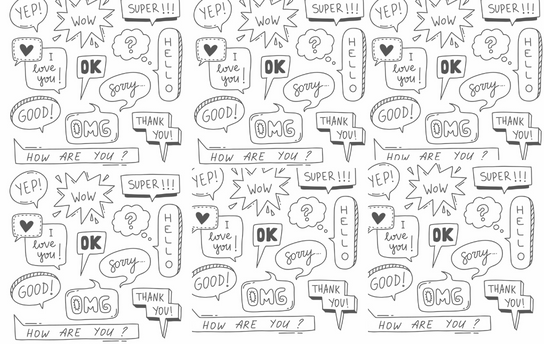 YEP!
WOW
SUPER!!!
?
HELLO
I
love
you!
OK
Sorry...
GOOD!
OMG
THANK
YOU!
HOW ARE YOU?
YEP!
WOW
SUPER!!!
?
HELLO
I
love
you!
OK
Sorry...
GOOD!
OMG
THANK
YOU!
HOW ARE YOU?
YEP!
WOW
SUPER!!!
?
HELLO
I
love
you!
OK
Sorry...
GOOD!
OMG
THANK
YOU!
HOW ARE YOU?
YEP!
WOW
SUPER!!!
?
HELLO
I
love
you!
OK
Sorry...
GOOD!
OMG
THANK
YOU!
HOW ARE YOU?
YEP!
WOW
SUPER!!!
?
HELLO
I
love
you!
OK
Sorry...
GOOD!
OMG
THANK
YOU!
HOW ARE YOU?
YEP!
WOW
SUPER!!!
?
HELLO
I
love
you!
OK
Sorry...
GOOD!
OMG
THANK
YOU!
HOW ARE YOU?